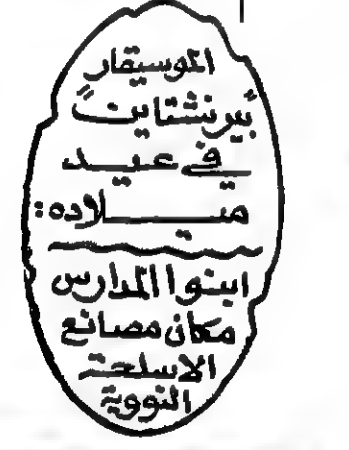 الموسيقار
بيرنشتاين
في عيــد
ميـــلاده:
ابنوا المدارس
مكان مصانع
الاسلحة
النووية